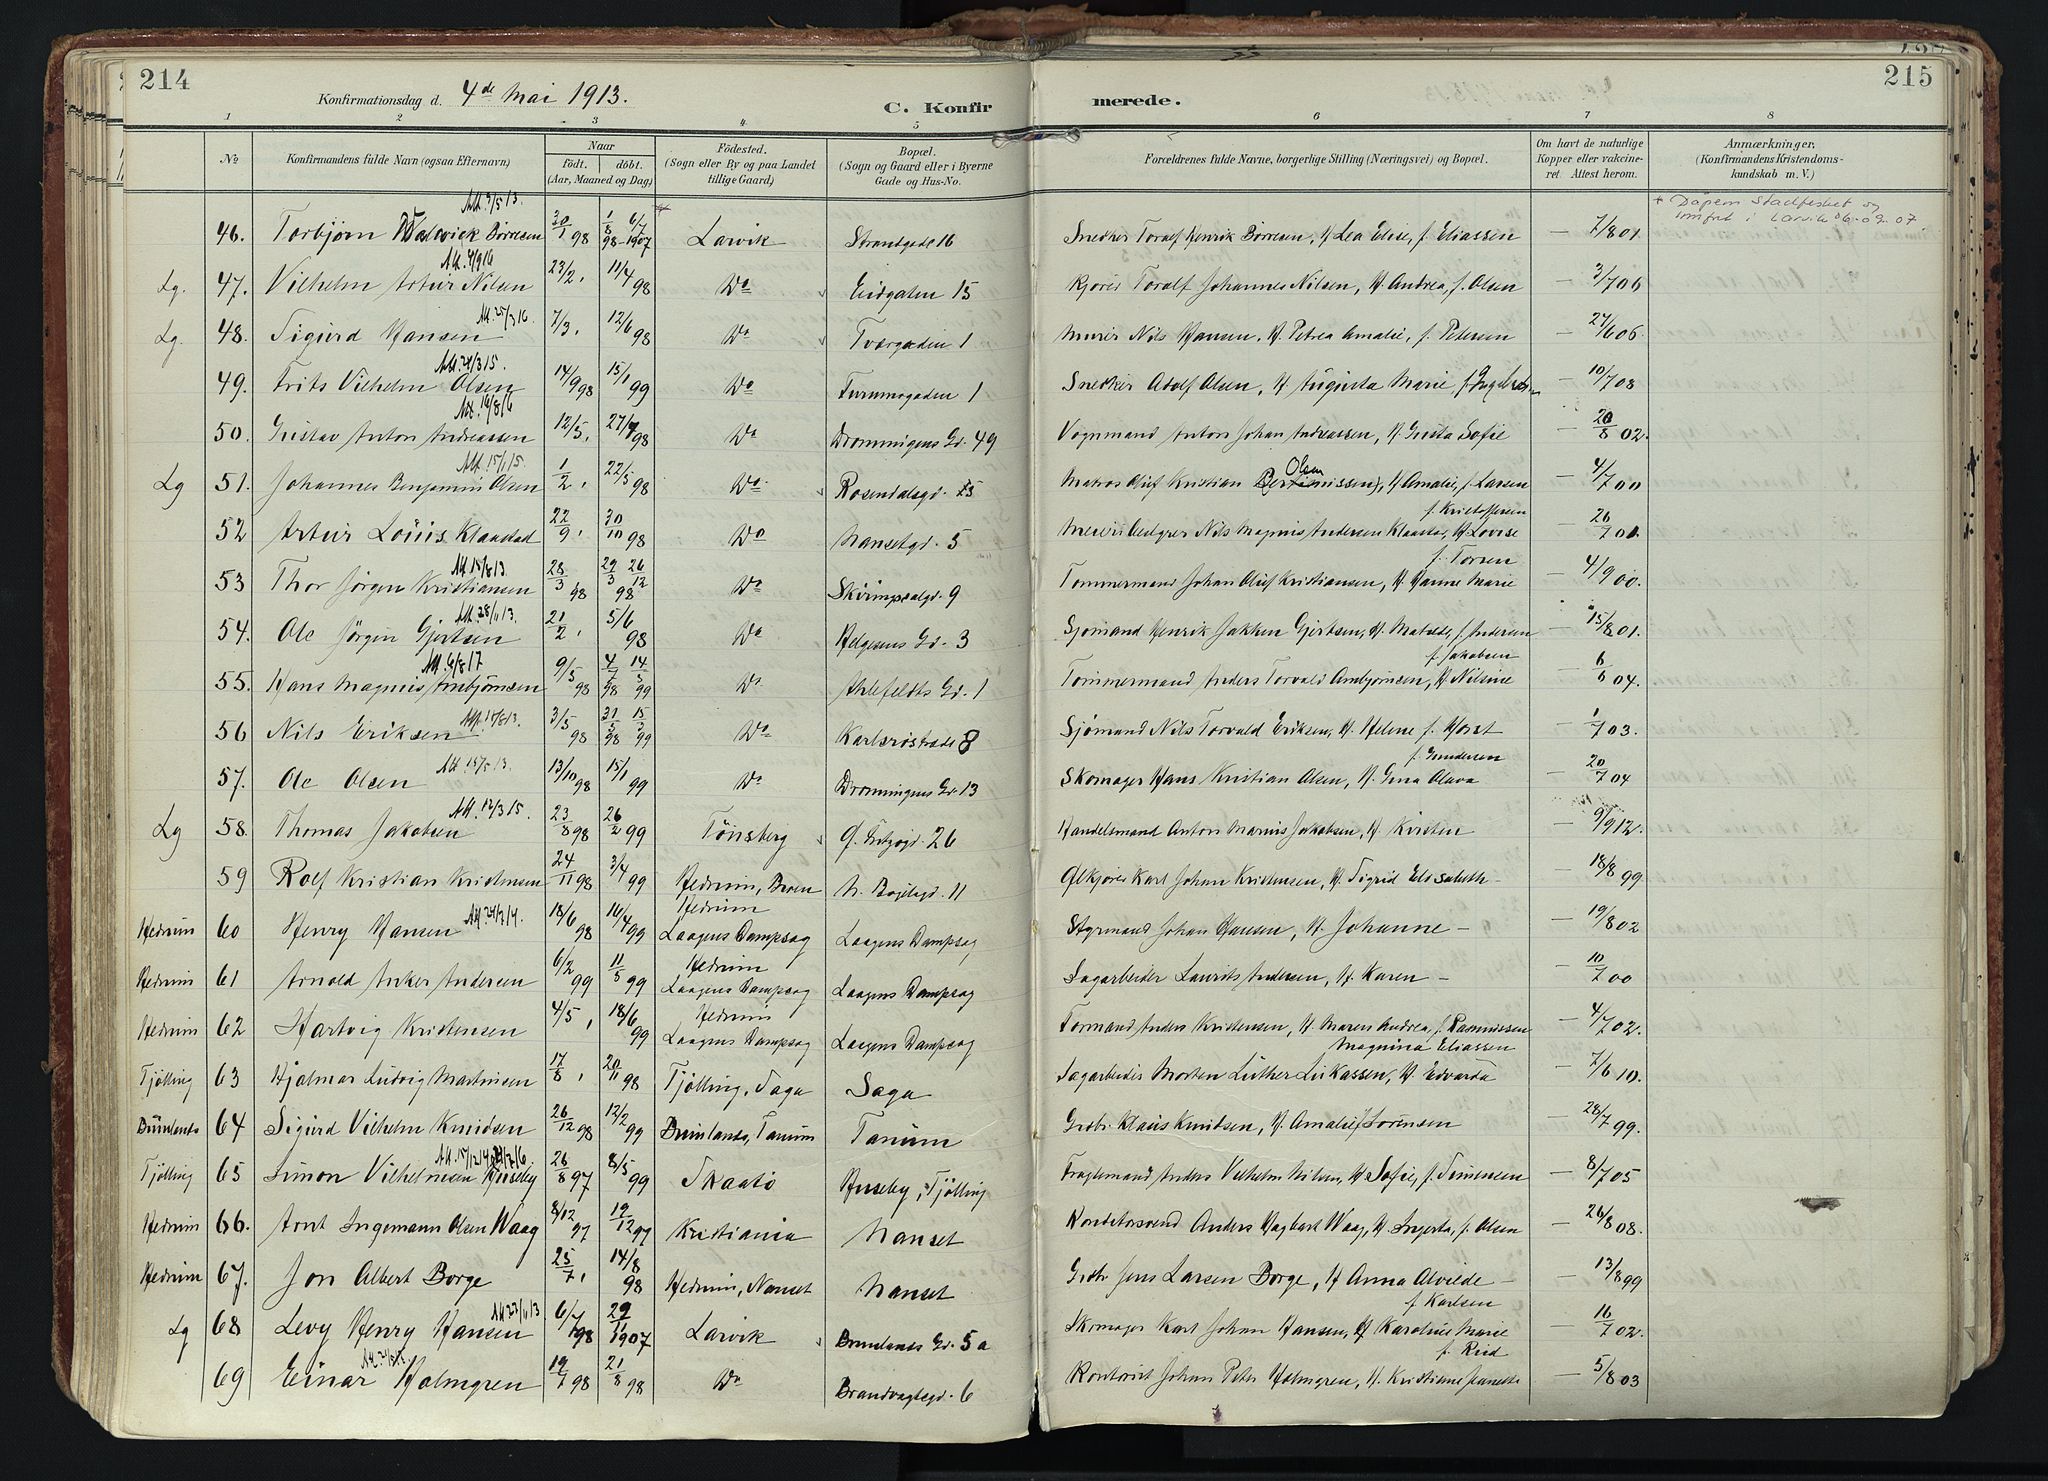 214
Konfirmationsdag d. 4de Mai 1913.
C. Konfir
merede.
215
1 2 3 4 5 6 7 8
No
Konfirmandens fulde Navn (ogsaa Efternavn)
Naar
født. døbt.
(Aar, Maaned og Dag)
Fødested.
(Sogn eller By og paa Landet
tillige Gaard)
Bopæl.
(Sogn og Gaard eller i Byerne
Gade og Hus-No.
Forældrenes fulde Navne, borgerlige Stilling (Næringsvei) og Bopæl.
Om havt de naturlige
Kopper eller vakcine-
ret. Attest herom.
Anmærkninger,
(Konfirmandens Kristendoms-
kundskab m. V.)
+ Dåpen stadfestet og
innført i Larvik 06.09.07.
46. Torbjørn Børresen 30/1 98 1/8 98 - 6/7 1907 Larvik Strandgade 16 Snedker Toralf Henrik Børresen, H. Lea Elise, f. Eliassen — 7/8 01
Lg. 47. Vilhelm Artur Nilsen 23/2, 11/4 98 Do Eidgaten 15 Kjører Toralf Johannes Nilsen, H. Andrea, f. Olsen — 3/7 06
Lg. 48. Sigurd Hansen 7/3, 12/6 98 Do Tvergaden 1 Murer Nils Hansen, H. Petrea Amalie, f. Petersen — 27/6 06
49. Frits Vilhelm Olsen 14/9 98 15/1 99 Do Furumogaden 1 Snedker Adolf Olsen, H. Augusta Marie — 10/7 08
50. Gustav Anton Andreassen 12/5, 27/7 98 Do Dronningens Gd. 49 Vognmand Anton Johan Andreassen, H. Gusta Sofie — 20/8 02.
Lg 51. Johannes Benjamin Olsen 1/2, 22/5 98 Do Rosendalsgd. 15 Matros Oluf Kristian Olsen H. Amalie, f. Larsen — 4/7 00
52 Artur Louis Klaastad 22/9, 30/10 98 Do Nansetgd. 5 Nils Magnus Andersen Klaastad, H. Lovise f. Kristoffersen — 26/7 01.
53 Thor Jörgen Kristiansen 28/3 98 29/3 98 26/12 Do Skiringssalgd. 9 Tømmermand Johan Oluf Kristiansen, H. Hanne Marie f. Torsen — 4/9 00.
54. Ole Jörgen Gjertsen 21/2, 5/6 98 Do Helgesens Gd. 3 Sjømand Henrik Jakken Gjertsen, H. Matilde, f. Andersen — 15/8 01.
55. Hans Magnus Ambjörnsen 9/5 98 4/7 98 14/5 99 Do Ahlefeldts Gd. 1 Tømmermand Anders Torvald Ambjørnsen, H. Nilsine f. Jakobsen — 6/6 04.
56 Nils Eriksen 3/5 98 31/5 98 15/2 99 Do Karlsrostræde 8 Sjømand Nils Torvald Eriksen, H. Helene f. Horst — 1/7 03.
57. Ole Olsen 13/10 98 15/1 99 Do Dronningens Gd. 13 Skomager Hans Kristian Olsen, H. Gina Olava f. Gundersen — 20/7 04
Lg 58. Thomas Jakobsen 23/8 98 26/2 99 Tönsberg 26 Handelsmand Anton Marius Jakobsen, H. Kirsten — 9/9 12.
59 Rolf Kristian Kristensen 24/11 98 3/4 99 Hedrum, 11 Ølkjører Karl Johan Kristensen, H. Sigrid Elisabeth — 18/8 99
Hedrum 60 Henry Hansen 18/6 98 16/4 99 Hedrum Laagens Dampsag Laagens Dampsag Styrmand Johan Hansen, H. Johanne — 19/8 02
Hedrum 61 Arnold Anker Andersen 6/2 99 11/5 99 Hedrum Laagens Dampsag Laagens Dampsag Sagarbeider Laurits Andersen, H. Karen — 10/7 00
Hedrum 62 Hartvig Kristensen 4/5, 18/6 99 Hedrum Laagens Dampsag Laagens Dampsag Formand Anders Kristensen, H. Maren Andrea, f. Rasmussen — 4/7 02.
Tjölling 63 Hjalmar Ludvig Martinsen 17/8, 20/11 98 Tjölling, Saga Saga Sagarbeider Morten Luther Lukassen, H. Edvarda Magnina Eliassen — 7/6 10.
Brunlanes 64 Sigurd Vilhelm Knudsen 26/12 98 12/2 99 Brunlanes, Tanum Tanum Grdbr. Klaus Knudsen, H. Amalie f. Sörensen — 28/7 99.
Tjölling 65 Simon Vilhelmsen Huseby 26/8 97 8/5 99 Skaatö Huseby, Tjölling Anders Vilhelm Nilsen, H. Sofie, f. Simensen — 8/7 05
Hedrum 66. Arnt Ingemann Olsen Waag 8/12 97 19/12 97 Kristiania Nanset Konditorsvend Anders Dagbart Waag, H. Ingerta, f. Olsen — 26/8 08.
Hedrum 67. Jon Albert Borge 25/7, 14/8 98 Hedrum, Nanset Nanset Grdbr. Jens Larsen Borge, H. Anna Alvilde — 13/8 99
Lg 68 Levy Henry Hansen 6/7 98 29/11 1907 Larvik Brunlanes Gd. 5a Skomager Karl Johan Hansen, H. Karoline Marie f. Karlsen — 16/7 02.
69 Einar Holmgren 19/7 98 21/8 98 Do Brandvagtsgd. 6 Kontorist Johan Peter Holmgren, H. Kristiane Janette f. Reid — 5/8 03